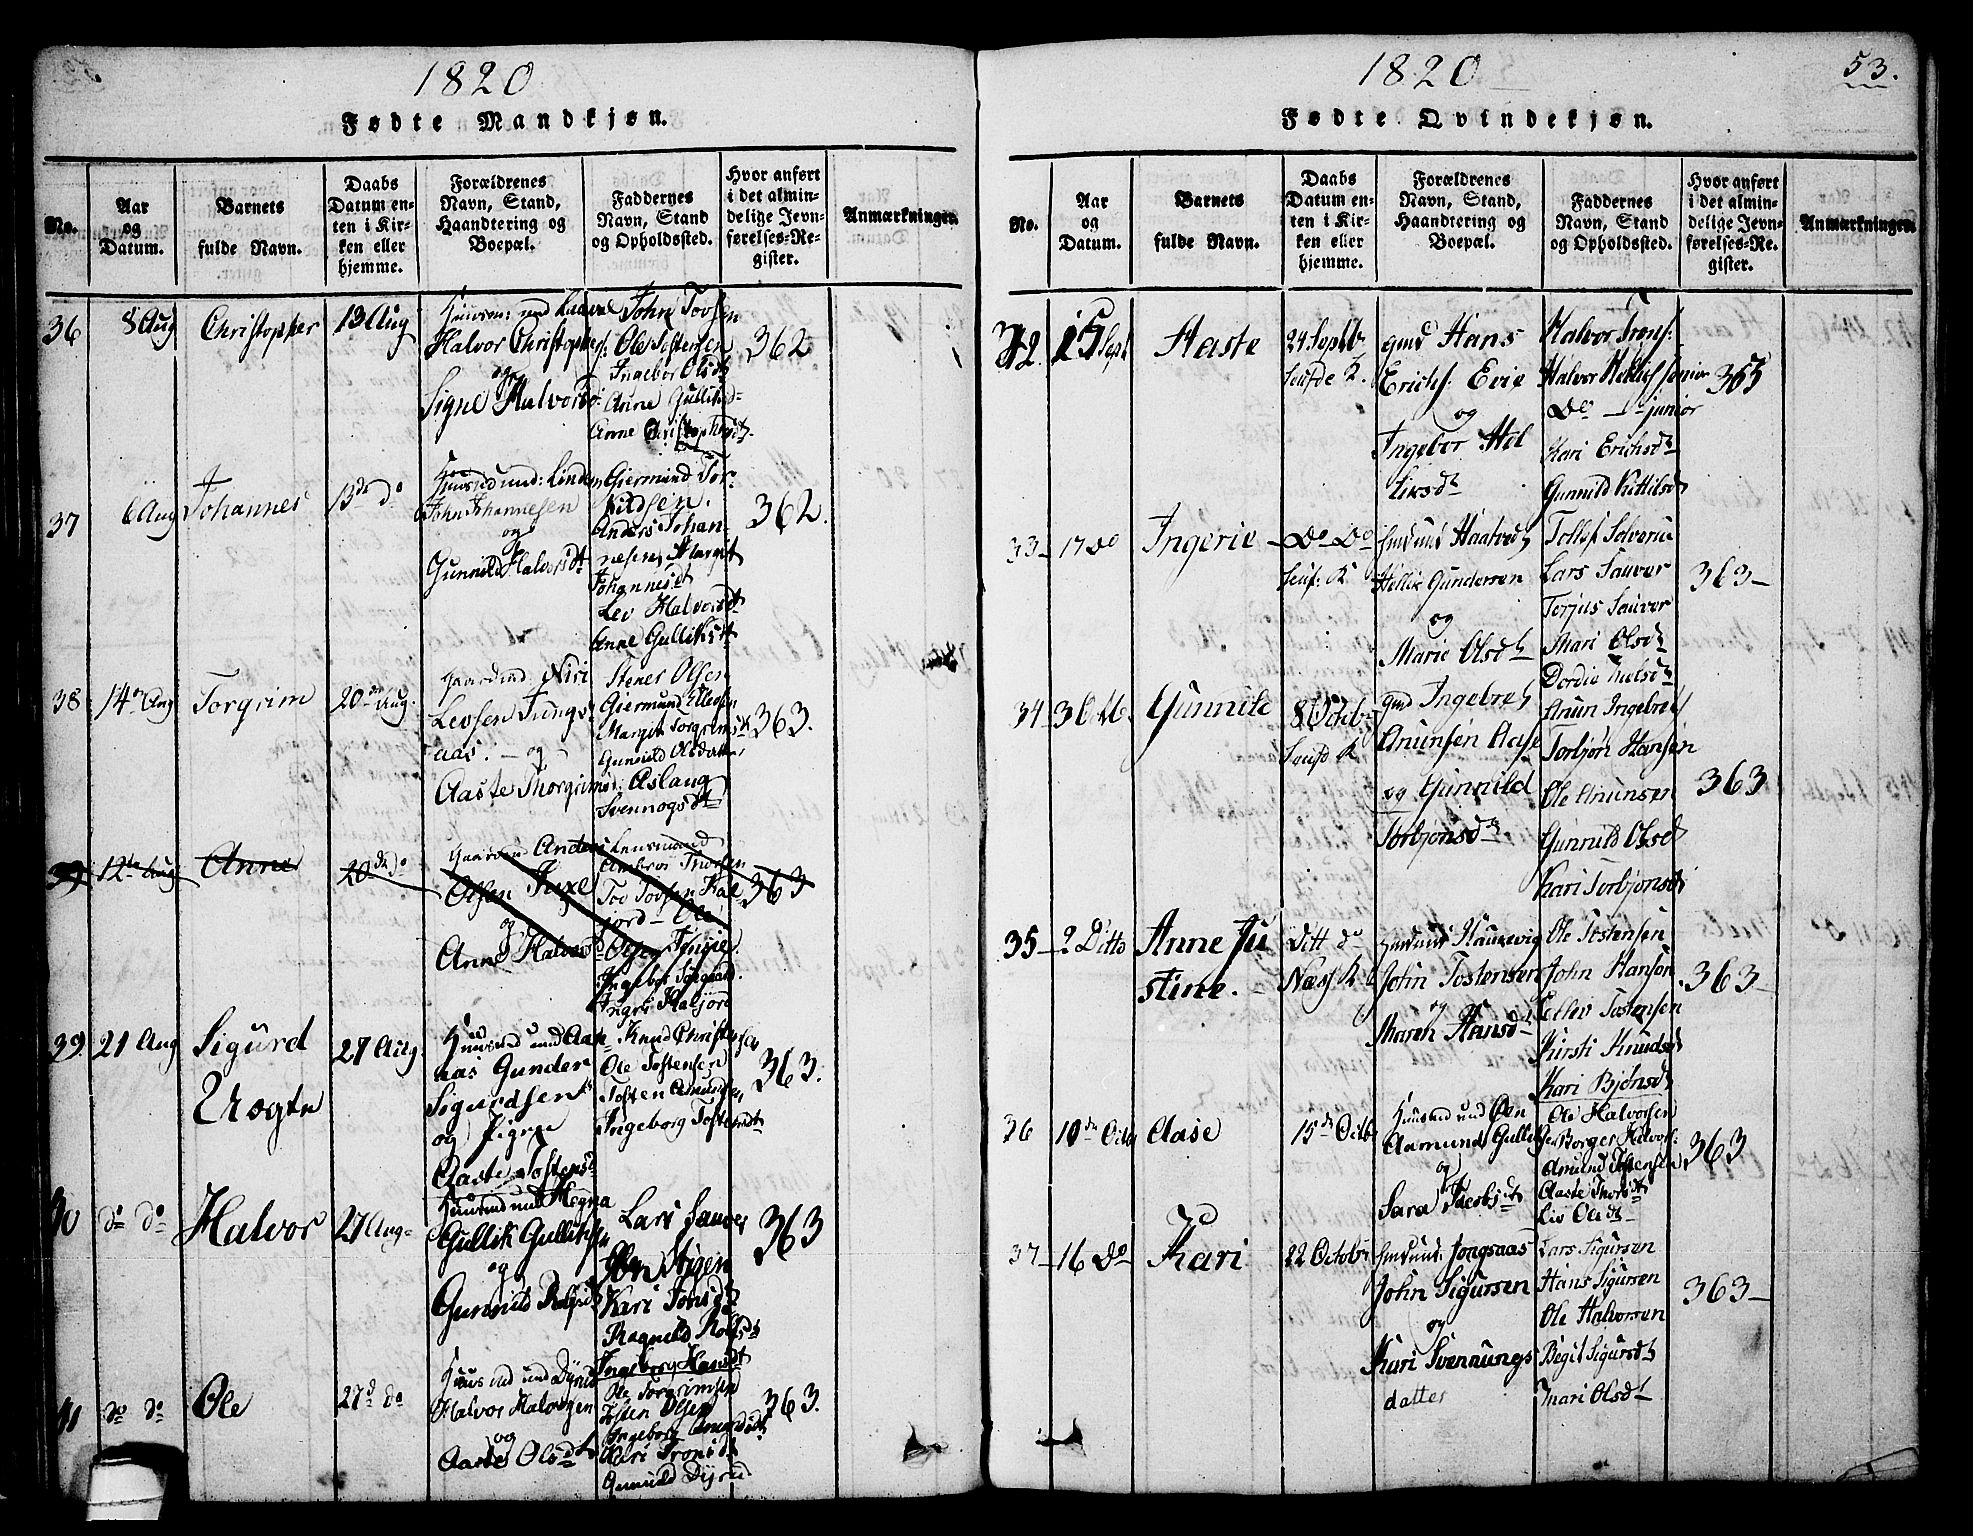 1820
Fødte Mandkjøn.
No.
Aar
og
Datum.
Barnets
fulde Navn.
Daabs
Datum en-
ten i Kir-
ken eller
hjemme.
Forældrenes
Navn, Stand,
Haandtering og
Boepæl.
Faddernes
Navn, Stand
og Opholdssted.
Hvor anført
i det almin-
delige Jevn-
førelses-Re-
gister.
Anmærkninger.
36
8 Aug
Christopher
13 Aug
Halvor Christophers:
og
Signe Halvorsd:
John Tovsen
Ole Tostensen
Ingebor Olsdt
Anne Gulliksd-
Anne Christophersdt.
362
37
6 Aug
Johannes
13de do
Huusfd und: Linden
John Johannesen
og
Gunnild Halvorsdt
Giermund Tor-
kildsen.
Anders Johan-
nesen, Margit
Johannesdt
Lev Halvorsdt
Anne Gulliksdt
362.
38
14de Aug
Torgrim
20de Aug.
Levsen Jungs-
aas. - og
Aaste Thorgrims:
Stener Olsen
Giermund Ellefsen
Margit Torgrimsdt
Gunnild Olsdatter
Aslaug
Svennogsdt
363.
39
12te Aug
Anne
20de do
Gaardm Anders
Olsen Juxe
og
Anne Halvorsd
Lensmand
Ambros Thorsen
Tov Tovsen Kal-
jord - Ole
Olsen
Ingebor
Ingri Kaljord
363
39
21 Aug
Sigurd
27 Aug.
aas Gunder
Sigurdsen
og Pigen
Aaste Tostensd
Knud Christensen
Ole Tostensen
Tosten Amundsen
Ingeborg Tostensdt
363.
40
do do
Halvor
27 Aug
Huusmd und Hegna
Gullik Gulliksen
og
Gunnild
Lars Sauver
Kari Tonsdt
Ragnild Rolfsdt
Ingeborg Hansdt
363
41
do do
Ole
27d do
Huusmd und Dyrud
Halvor Halvorsen
og
Aaste Olsdt
Ole Torgrimsen
Tosten Olsen
Ingeborg Amundsdt
Kari Tronsdt
Gunnild Dyrud
363.
1820
53.
Fødte Qvindekjøn.
No.
Aar
og
Datum.
Barnets
fulde Navn.
Daabs
Datum en-
ten i Kir-
ken eller
hjemme.
Forældrenes
Navn, Stand,
Haandtering og
Boepæl.
Faddernes
Navn, Stand
og Opholdssted.
Hvor anført
i det almin-
delige Jevn-
førelses-Re-
gister.
Anmærkninger.
32
15 Sept
Haste
24 Septb
K.
gmd Hans
Erichs: Evie
og
Ingebor Hel
liksdt
Halvor Irons:
Halvor Helliks senior
Do - junior
Kari Erichsdt
Gunnild Kittilsdt
365
33-
17 do
Ingerie
Do Do
K
Hellik Gundersen
og
Marie Olsdt
Tollof Solverud
Lars Sauver
Torjus Sauver
Mari Olsdt
Dordie Nielsdt
363-
34
3 Octb.
Gunnild
8 Octob
K
gmd Ingebret
Anunsen Aase
og Gunnild
Torbjonsdt
Anun Ingebret
Torbjørn Hansen
Ole Anunsen
Gunnild Olsdt
Kari Torbjonsdt
363
35-
2 Ditto
Anne Ju
stine.
Ditt do
Næs K
John Tostensen
og
Maren Hansdt
Ole Tostensen
John Hanson
Ellev Tostensen
Kirsti Knudsdt
Kari Bjønsdt
363-
36
10de Octb
Aase
15de Octb
Huusmd und Øen
Aamund Gulliksen
og
Sara Jacobsdt
Ole Halvorsen
Borger Halvors:
Amund Tostensen
Aaste Thorsdt
Liv Olsdt
363
37-
16 Do
Kari
22 Octobr
gmd und: Jongsaas
John Sigursen
og
Kari Svennungs
datter
Lars Sigursen
Hans Sigursen
Ole Halvorsen
Begit Sigursdt
Mari Olsdt
363-